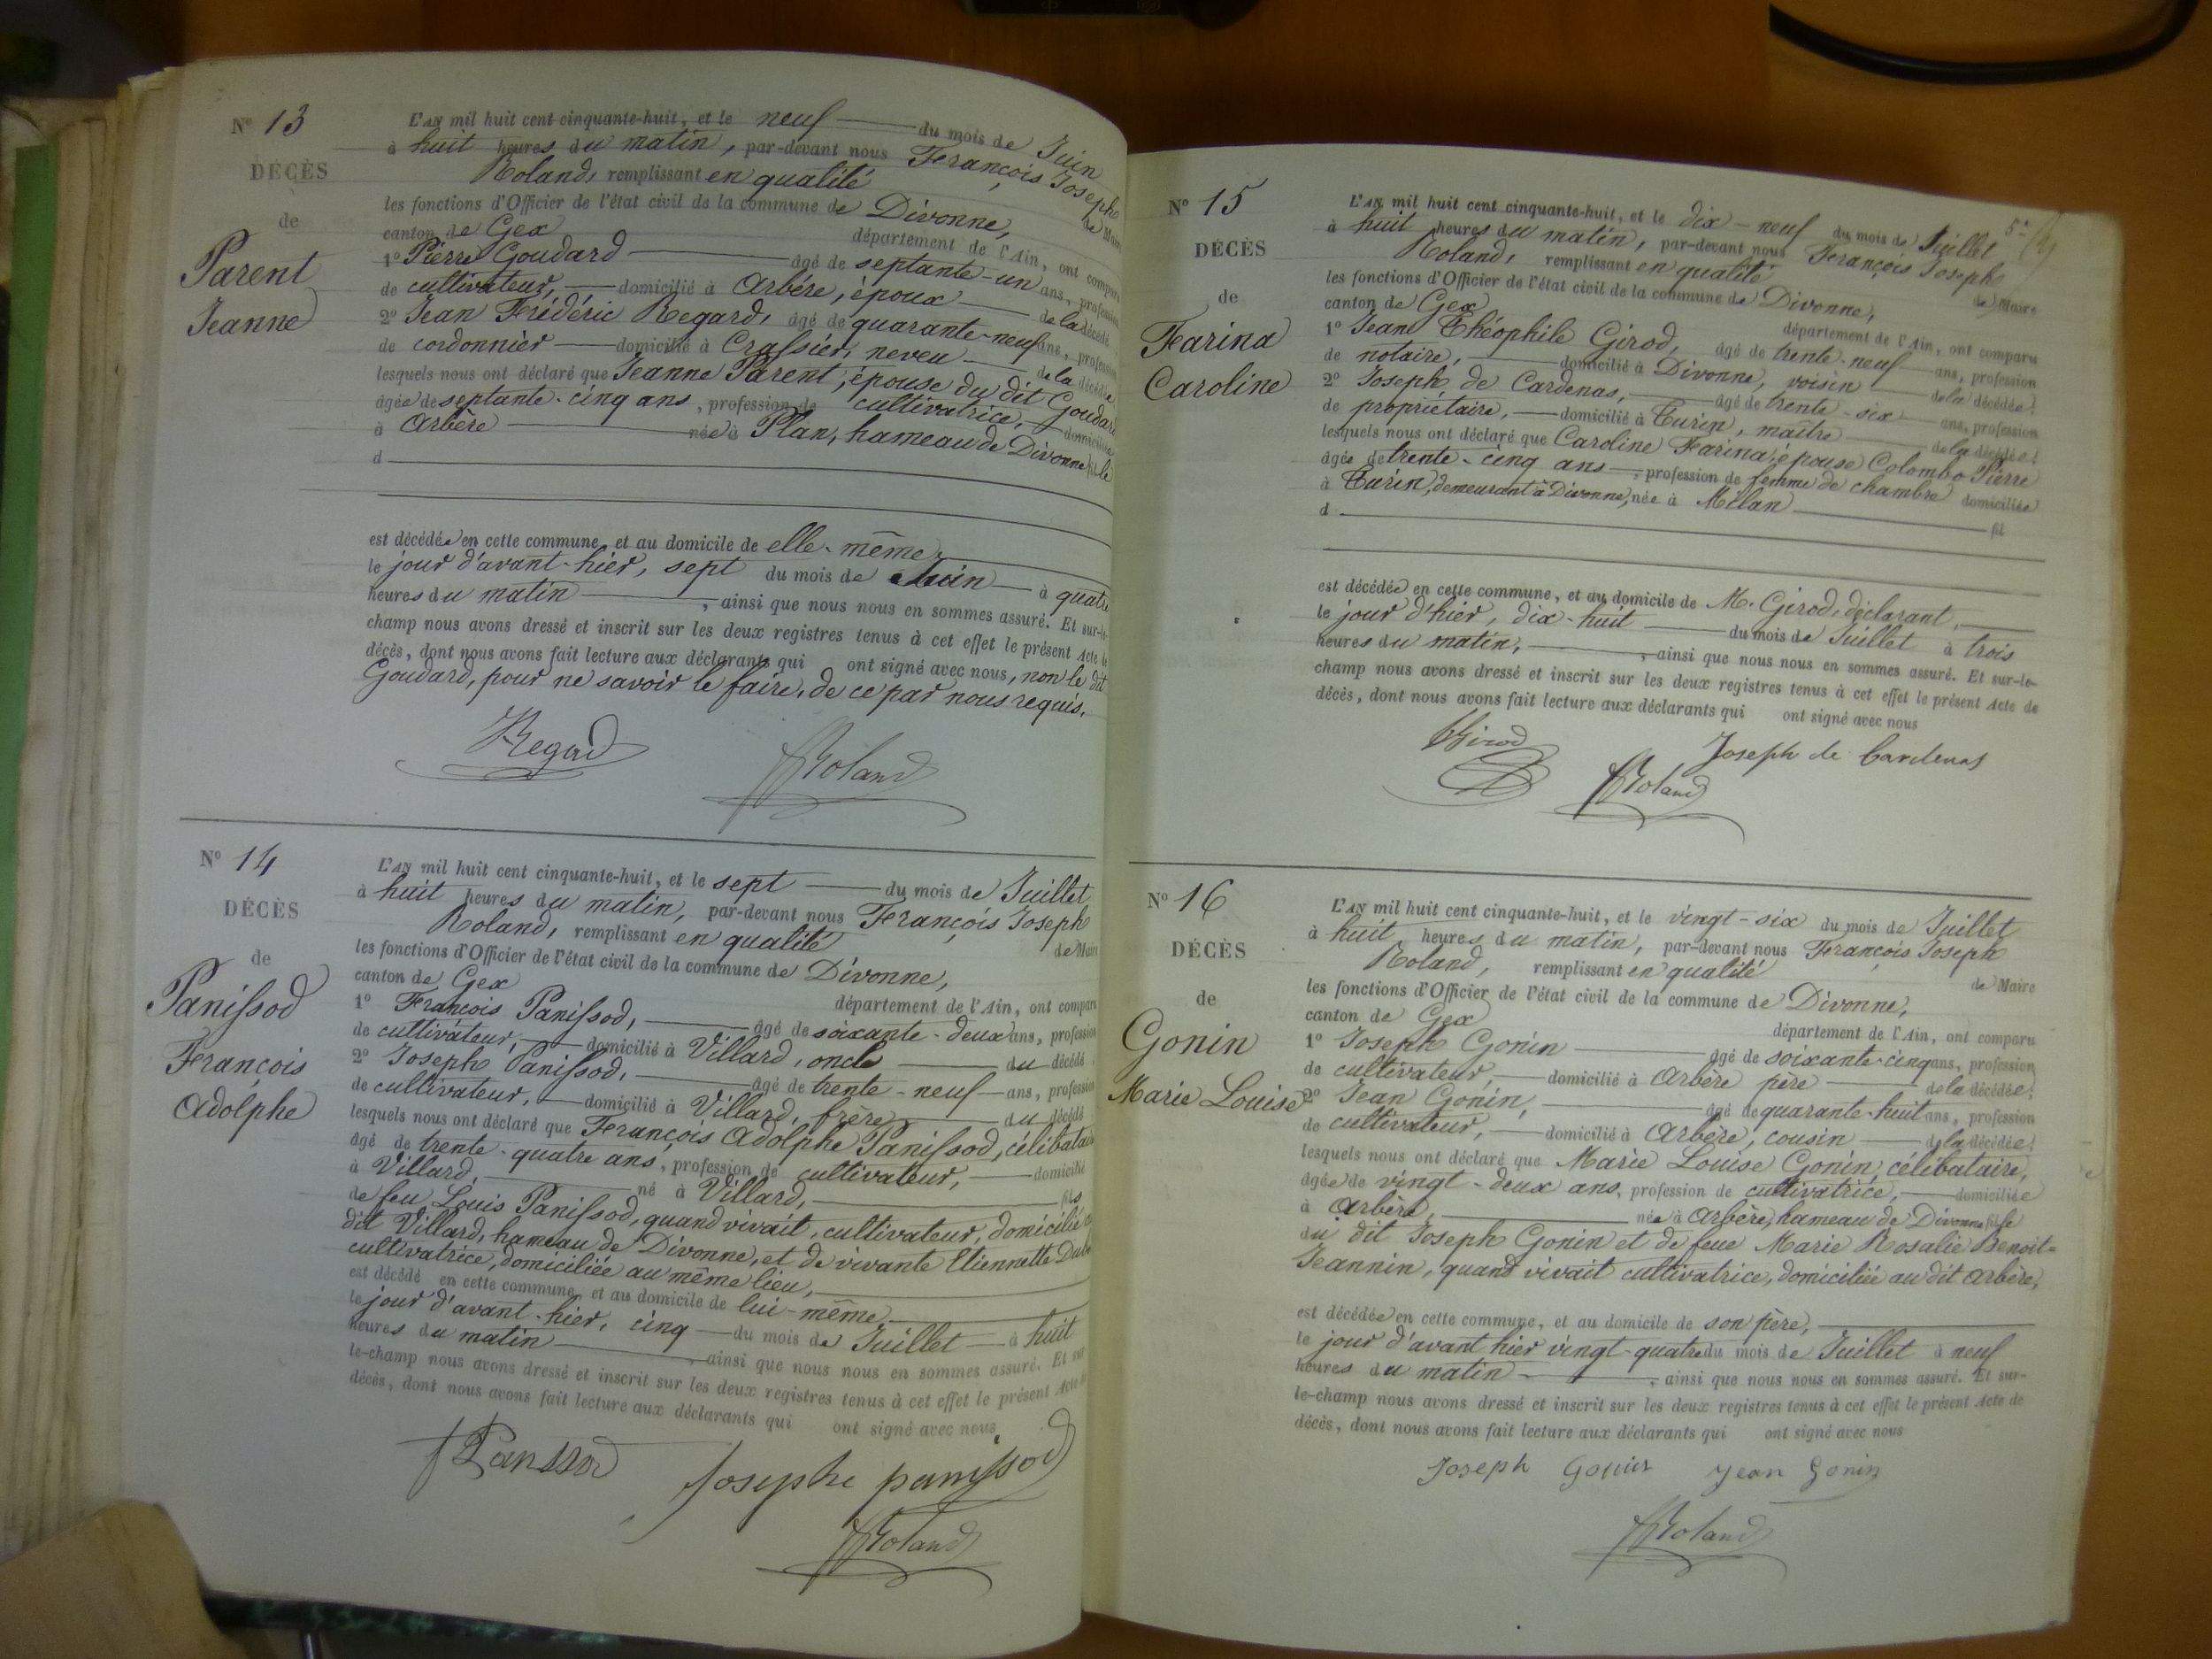 Nº 13
DÉCÈS
de
Parent
Jeanne
L'AN mil huit cent cinquante-huit, et le neuf du mois de Juin
à huit heures du matin, par-devant nous François Joseph
Roland, remplissant en qualité de Maire
les fonctions d'Officier de l'état civil de la commune de Divonne,
canton de Gex département de l'Ain, ont comparu
1º Pierre Goudard âgé de septante-un ans, profession
de cultivateur, domicilié à Arbère, époux de la décédée
2º Jean Frédéric Regard, âgé de quarante-neuf ans, profession
de cordonnier domicilié à Crassier, neveu de la décédée
lesquels nous ont déclaré que Jeanne Parent, épouse du dit Goudard
âgée de septante-cinq ans, profession de cultivatrice, domiciliée
à Arbère née à Plan, hameau de Divonne fille
d
est décédée en cette commune, et au domicile de elle-même,
le jour d'avant-hier, sept du mois de Juin à quatre
heures du matin, ainsi que nous nous en sommes assuré. Et sur-le-
champ nous avons dressé et inscrit sur les deux registres tenus à cet effet le présent Acte de
décès, dont nous avons fait lecture aux déclarants qui ont signé avec nous, non le dit
Goudard, pour ne savoir le faire, de ce par nous requis.
Regad
Roland
Nº 14
DÉCÈS
de
Panissod
François
Adolphe
L'AN mil huit cent cinquante-huit, et le sept du mois de Juillet
à huit heures du matin, par-devant nous François Joseph
Roland, remplissant en qualité de Maire
les fonctions d'Officier de l'état civil de la commune de Divonne,
canton de Gex département de l'Ain, ont comparu
1º François Panissod, âgé de soixante-deux ans, profession
de cultivateur, domicilié à Villard, oncle du décédé
2º Joseph Panissod, âgé de trente-neuf ans, profession
de cultivateur, domicilié à Villard, frère du décédé
lesquels nous ont déclaré que François Adolphe Panissod, célibataire
âgé de trente-quatre ans, profession de cultivateur, domicilié
à Villard, né à Villard, fils
de feu Louis Panissod, quand vivait, cultivateur, domicilié au
dit Villard, hameau de Divonne, et de vivante Etiennette
cultivatrice, domiciliée au même lieu,
est décédé en cette commune et au domicile de lui-même,
le jour d'avant-hier, cinq du mois de Juillet à huit
heures du matin, ainsi que nous nous en sommes assuré. Et sur
le-champ nous avons dressé et inscrit sur les deux registres tenus à cet effet le présent Acte de
décès, dont nous avons fait lecture aux déclarants qui ont signé avec nous
Josephe panissod
Roland
5e
Nº 15
DÉCÈS
de
Farina
Caroline
L'AN mil huit cent cinquante-huit, et le dix-neuf du mois de Juillet
à huit heures du matin, par-devant nous François Joseph
Roland, remplissant en qualité de Maire
les fonctions d'Officier de l'état civil de la commune de Divonne,
canton de Gex département de l'Ain, ont comparu
1º Jean Théophile Girod, âgé de trente-neuf ans, profession
de notaire, domicilié à Divonne, voisin de la décédée.
2º Joseph de Cardenas, âgé de trente-six ans, profession
de propriétaire, domicilié à Turin, maître de la décédée.
lesquels nous ont déclaré que Caroline Farina, épouse Colombo Pierre
âgée de trente-cinq ans, profession de femme de chambre domiciliée
à Turin, demeurant à Divonne, née à Milan
d fil
est décédée en cette commune, et au domicile de M. Girod, déclarant,
le jour d'hier, dix-huit du mois de Juillet à trois
heures du matin, ainsi que nous nous en sommes assuré. Et sur-le-
champ nous avons dressé et inscrit sur les deux registres tenus à cet effet le présent Acte de
décès, dont nous avons fait lecture aux déclarants qui ont signé avec nous
Girod
Joseph de Cardenas
Roland
Nº 16
DÉCÈS
de
Gonin
Marie Louise
L'AN mil huit cent cinquante-huit, et le vingt-six du mois de Juillet
à huit heures du matin, par-devant nous François Joseph
Roland, remplissant en qualité de Maire
les fonctions d'Officier de l'état civil de la commune de Divonne,
canton de Gex département de l'Ain, ont comparu
1º Joseph Gonin âgé de soixante-cinq ans, profession
de cultivateur, domicilié à Arbère père de la décédée.
2º Jean Gonin, âgé de quarante-huit ans, profession
de cultivateur, domicilié à Arbère, cousin de la décédée.
lesquels nous ont déclaré que Marie Louise Gonin, célibataire,
âgée de vingt-deux ans, profession de cultivatrice, domiciliée
à Arbère, née à Arbère, hameau de Divonne fille
du dit Joseph Gonin et de feue Marie Rosalie Benoit-
Jeannin, quand vivait cultivatrice, domiciliée au dit Arbère,
est décédée en cette commune, et au domicile de son père,
le jour d'avant hier vingt-quatre du mois de Juillet à neuf
heures du matin, ainsi que nous nous en sommes assuré. Et sur-
le-champ nous avons dressé et inscrit sur les deux registres tenus à cet effet le présent Acte de
décès, dont nous avons fait lecture aux déclarants qui ont signé avec nous
Joseph Gonin Jean Gonin
Roland